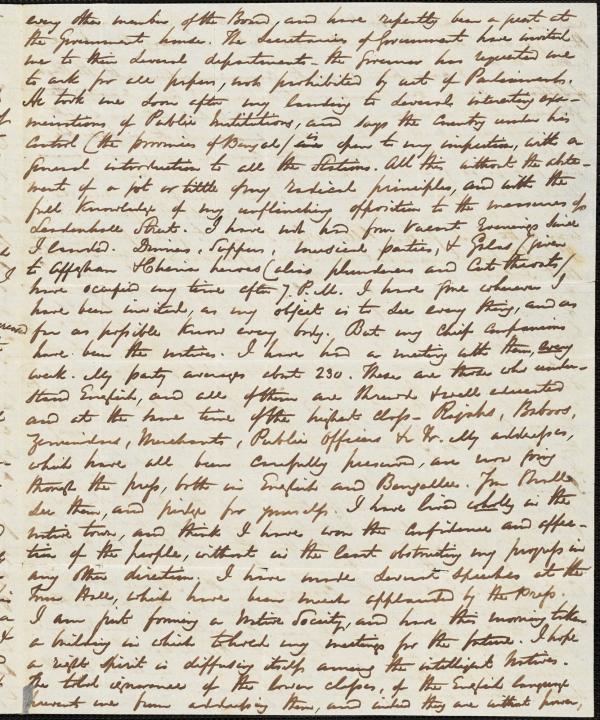 every other member of the Board, and have repeatedly been a guest at
the Government house. The Secretaries of Government have invited
me to their several departments - the Governor has requested me
to ask for all papers, not prohibited by act of Parliament.
He took me soon after my landing to several interesting exa-
minations of Public Institutions, and says the Country under his
Control (the provinces of Bengal) is open to my inspection, with a
General introduction to all the Stations. All this without the abate-
ment of a jot or tittle of my radical principles, and with the
full knowledge of my unflinching opposition to the measures of
Leadenhall Street. I have not had four vacant Evenings since
I landed. Dinners, Suppers, musical parties, & Galas (given
to Affghan & Chinese heroes (alias plunderers and Cut throats)
have occupied my time after 7 P.M. I have gone wherever I
have been invited, as my object is to see every thing, and as
far as possible know every body. But my chief companions
have been the natives. I have had a meeting with them, every
week. My party averages about 230. These are those who under-
stand English, and all of them are shrewd & well educated
and at the same time of the highest class - Rajahs, Baboos,
Zemindars, Merchants, Public Officers &c &c. My addresses,
which have all been carefully preserved, are now going
through the press, both in English and Bengallee. You shall
see them, and judge for yourself. I have lived wholly in the
native town, and think I have won the confidence and affec-
tion of the people, without in the least obstructing my progress in
any other direction. I have made several speeches at the
Town Hall, which have been much applauded by the Press.
I am just forming a Native Society, and have this morning taken
a building in which to hold my meetings for the future. I hope
a right spirit is diffusing itself among the intelligent Natives.
The total ignorance of the lower classes, of the English language
prevent me from addressing them, and indeed they are without power,